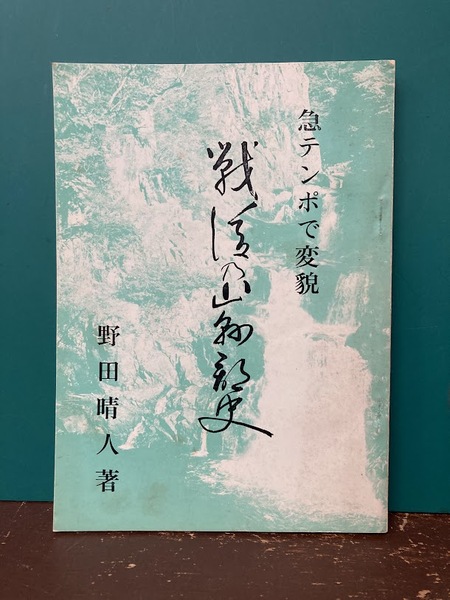 急テンポで変貌
戦後の山県郡史
野田晴人著